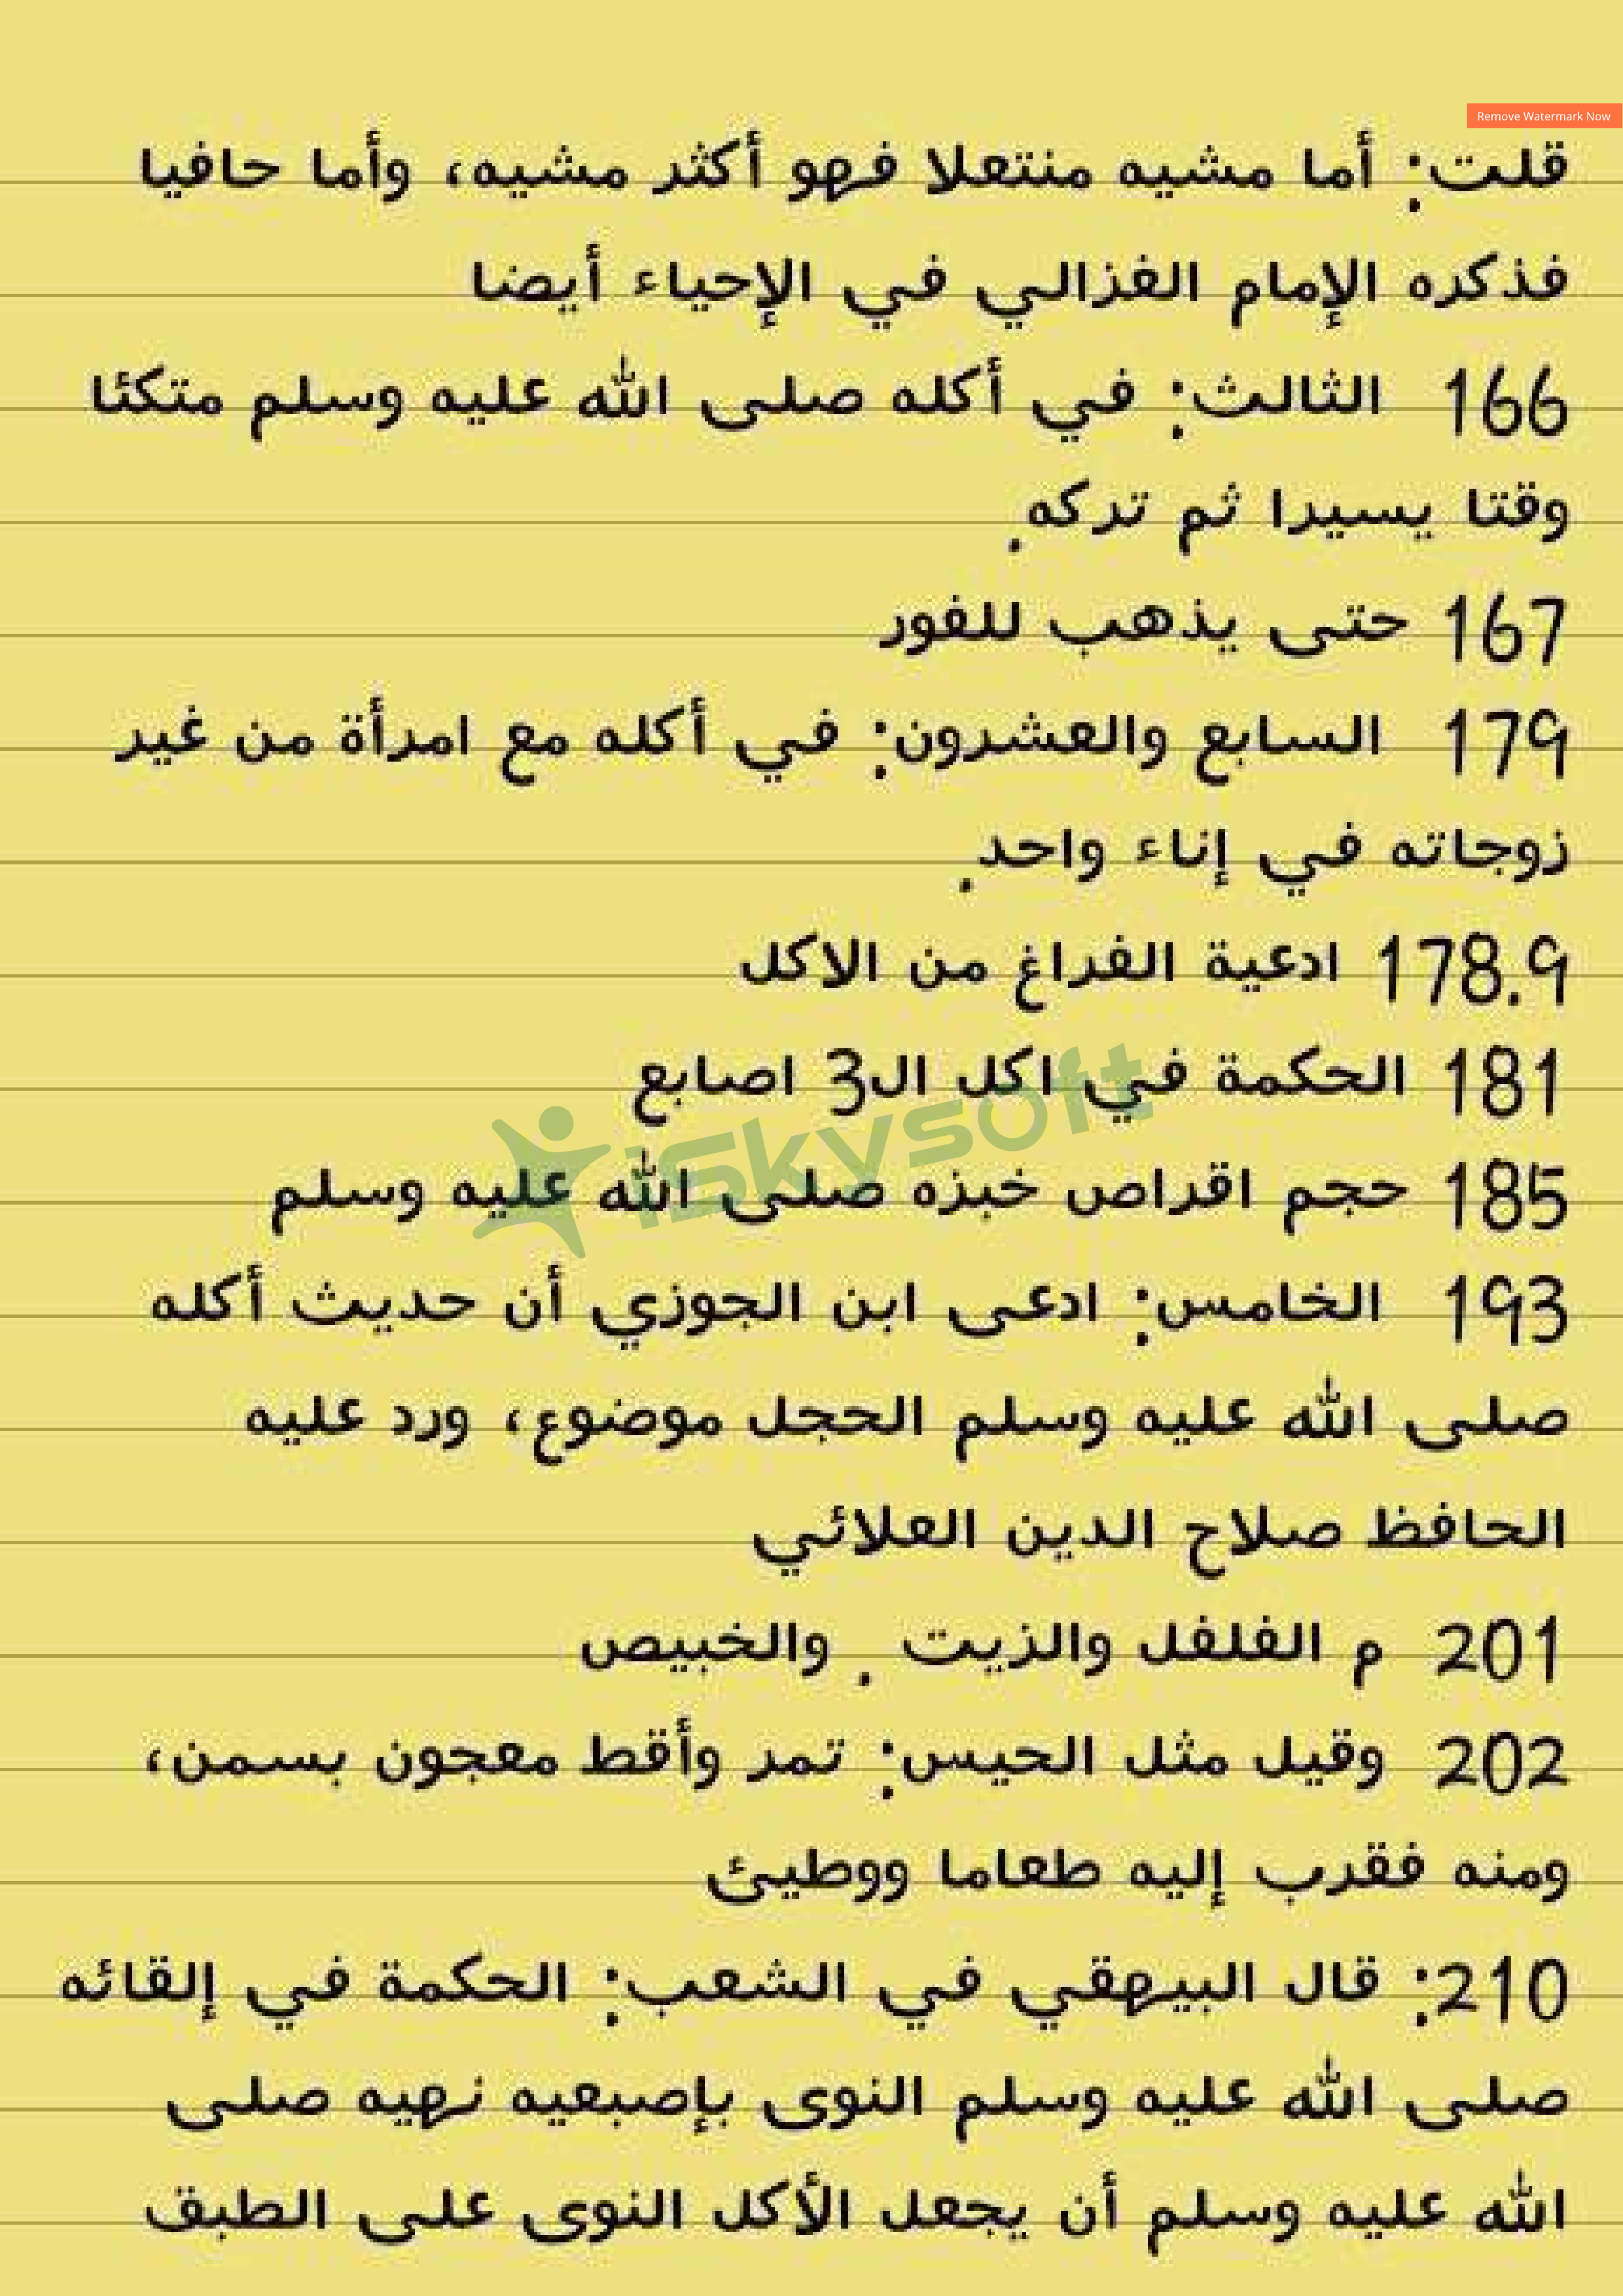 Remove Watermark Now
قلت: أما مشيه منتعلا فهو أكثر مشيه، وأما حافيا
فذكره الإمام الغزالي في الإحياء أيضا
166 الثالث: في أكله صلى الله عليه وسلم متكئا
وقتا يسيرا ثم تركه.
167 حتى يذهب للفور
179 السابع والعشرون: في أكله مع امرأة من غير
زوجاته في إناء واحد.
178.9 ادعية الفراغ من الاكل
181 الحكمة في اكل ال3 اصابع
iSkysoft
185 حجم اقراص خبزه صلى الله عليه وسلم
193 الخامس: ادعى ابن الجوزي أن حديث أكله
صلى الله عليه وسلم الحجل موضوع، ورد عليه
الحافظ صلاح الدين العلائي
201 م الفلفل والزيت . والخبيص
202 وقيل مثل الحيس: تمر وأقط معجون بسمن،
ومنه فقرب إليه طعاما ووطيئ
210: قال البيهقي في الشعب: الحكمة في إلقائه
صلى الله عليه وسلم النوى بإصبعيه نهيه صلى
الله عليه وسلم أن يجعل الأكل النوى على الطبق